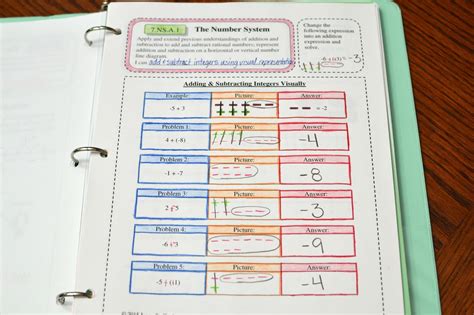 7.NS.A.1 The Number System
Apply and extend previous understandings of addition and
subtraction to add and subtract rational numbers; represent
addition and subtraction on a horizontal or vertical number
line diagram.
I can add & subtract integers using visual representation
Change the
following expression
into an addition
expression and
solve.
-6 + (+3) = -3
Adding & Subtracting Integers Visually
Example: Picture: Answer:
-5 + 3 = -2
Problem 1: Picture: Answer:
4 + (-8) -4
Problem 2: Picture: Answer:
-1 + -7 -8
Problem 3: Picture: Answer:
2 - 5 -3
Problem 4: Picture: Answer:
-6 - 3 -9
Problem 5: Picture: Answer:
-4